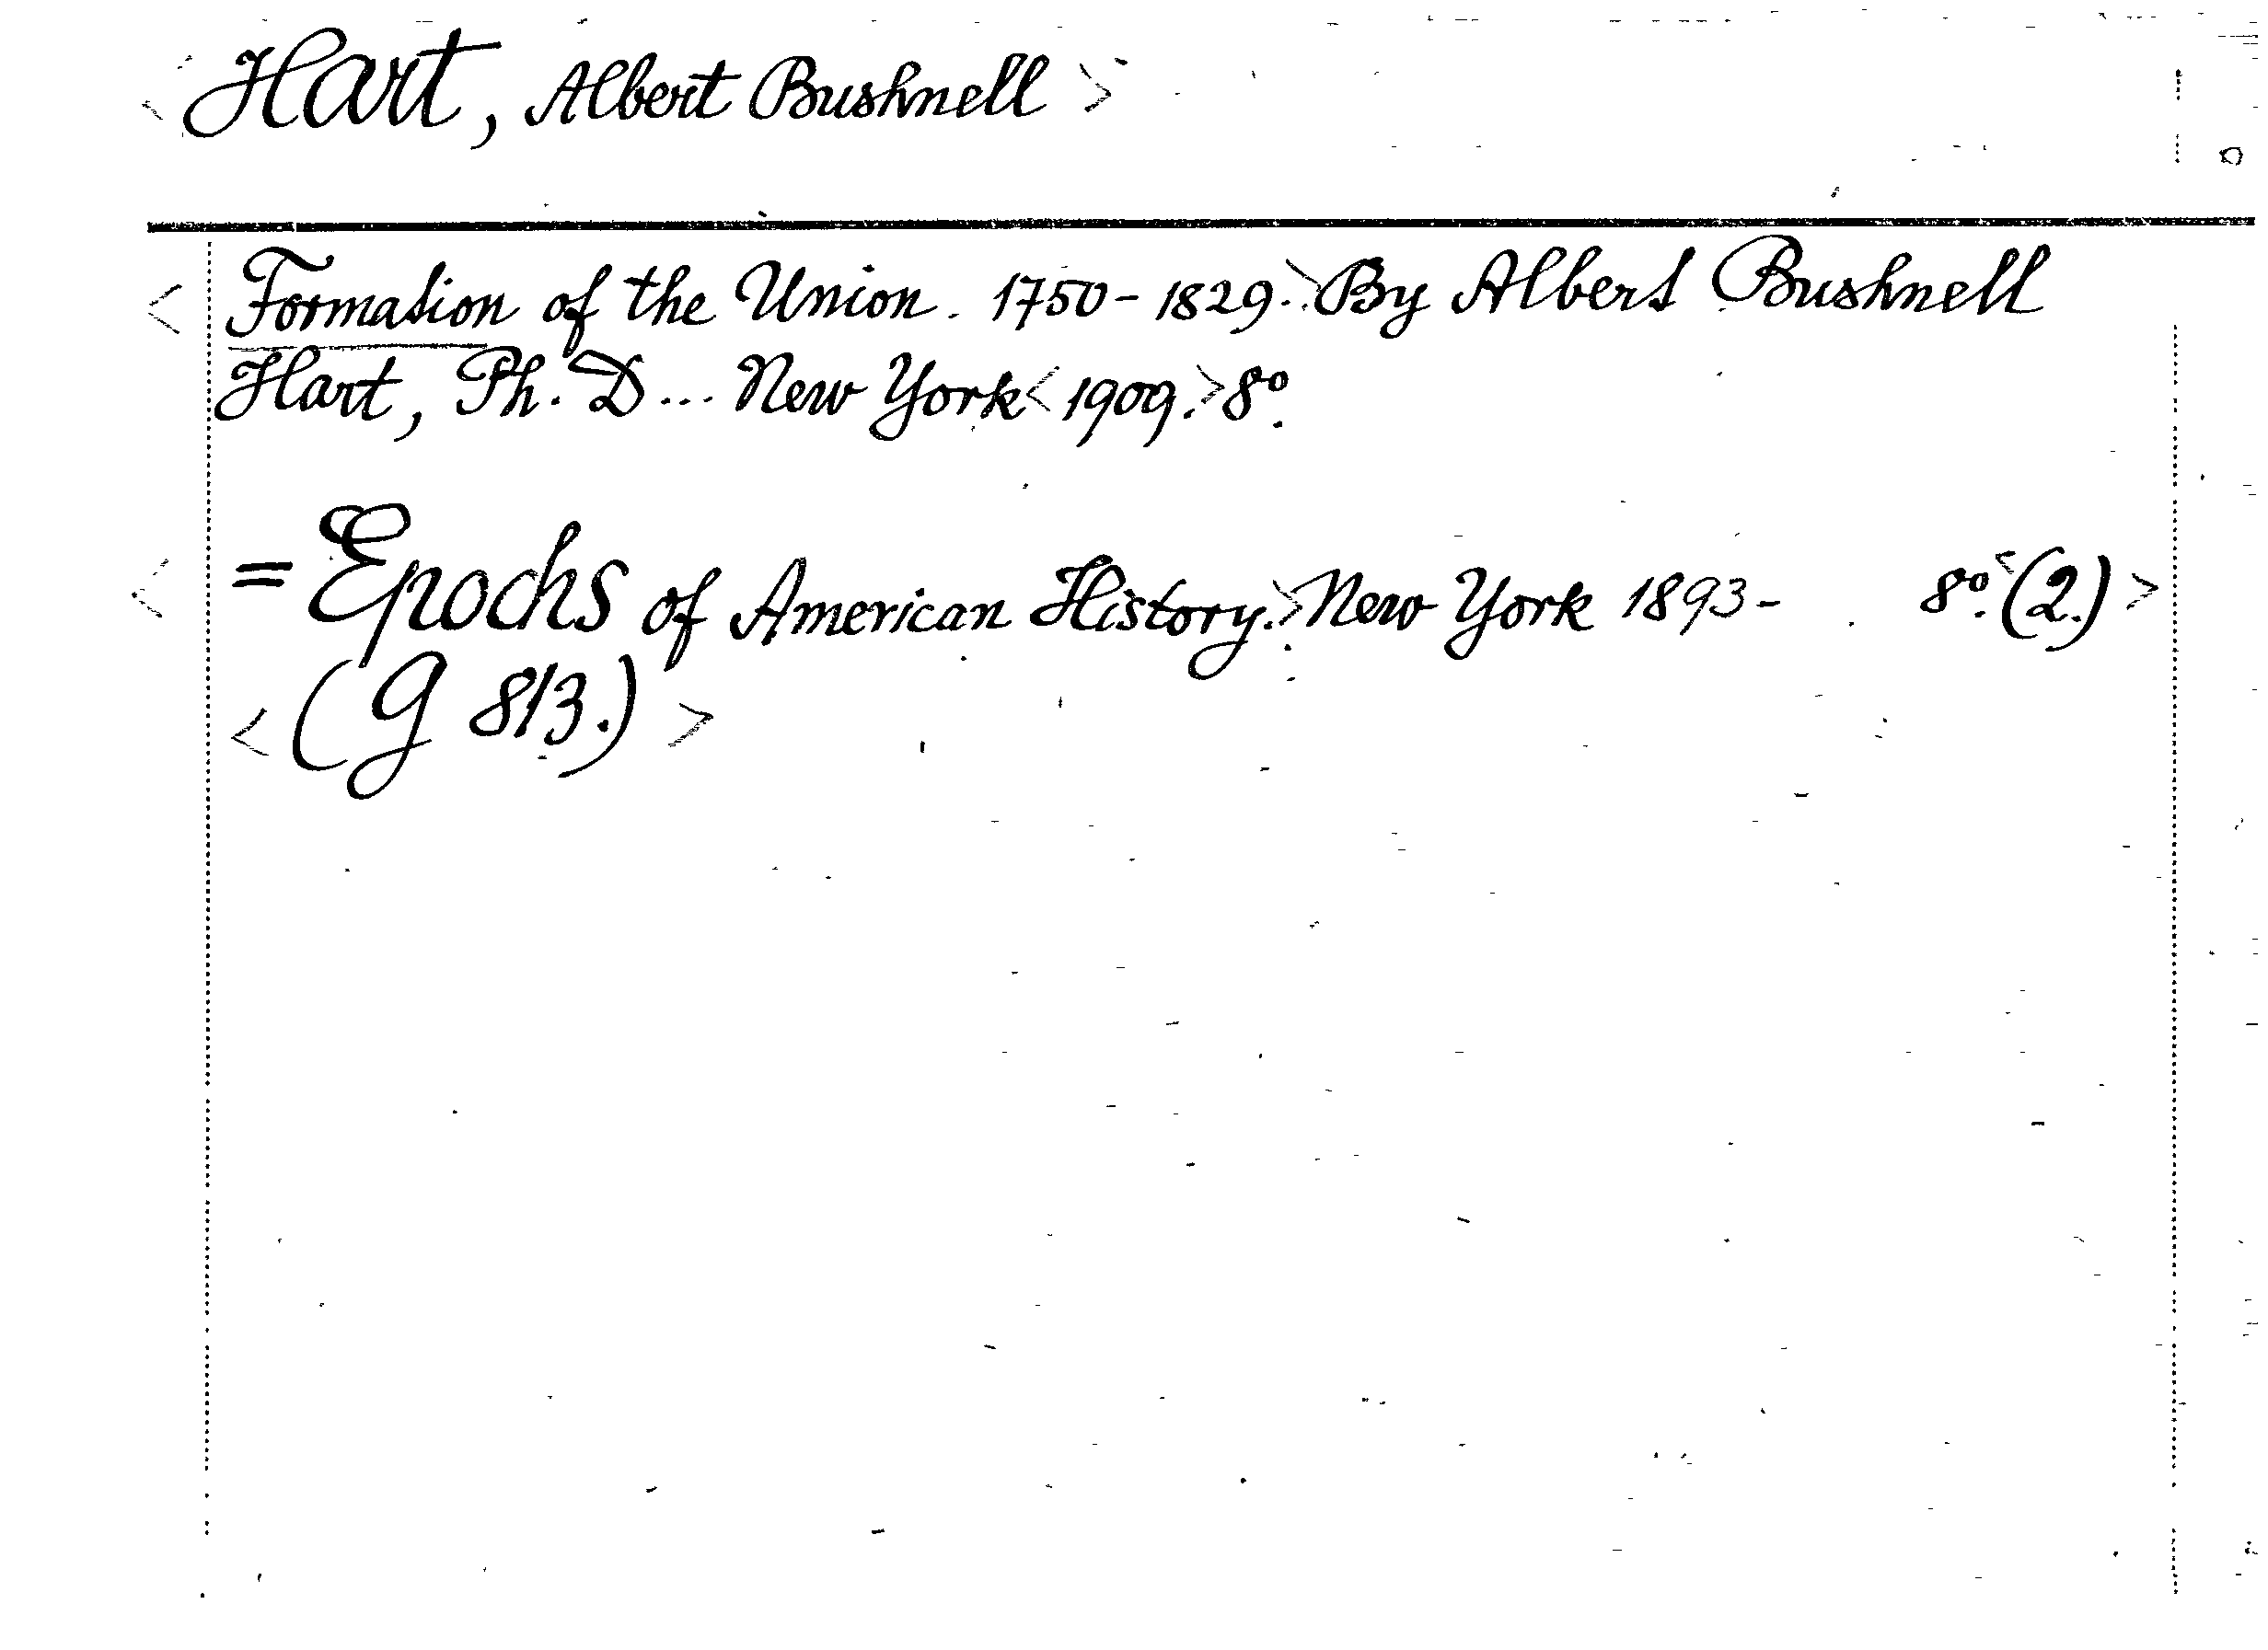 < Hart, Albert Bushnell >
< Formation of the Union. 1750-1829.> By Albert Bushnell
Hart, Ph. D... New York < 1909.> 8o.
< = Epochs of American History.> New York 1893- 8o. <(2.)>
< (G 813.) >